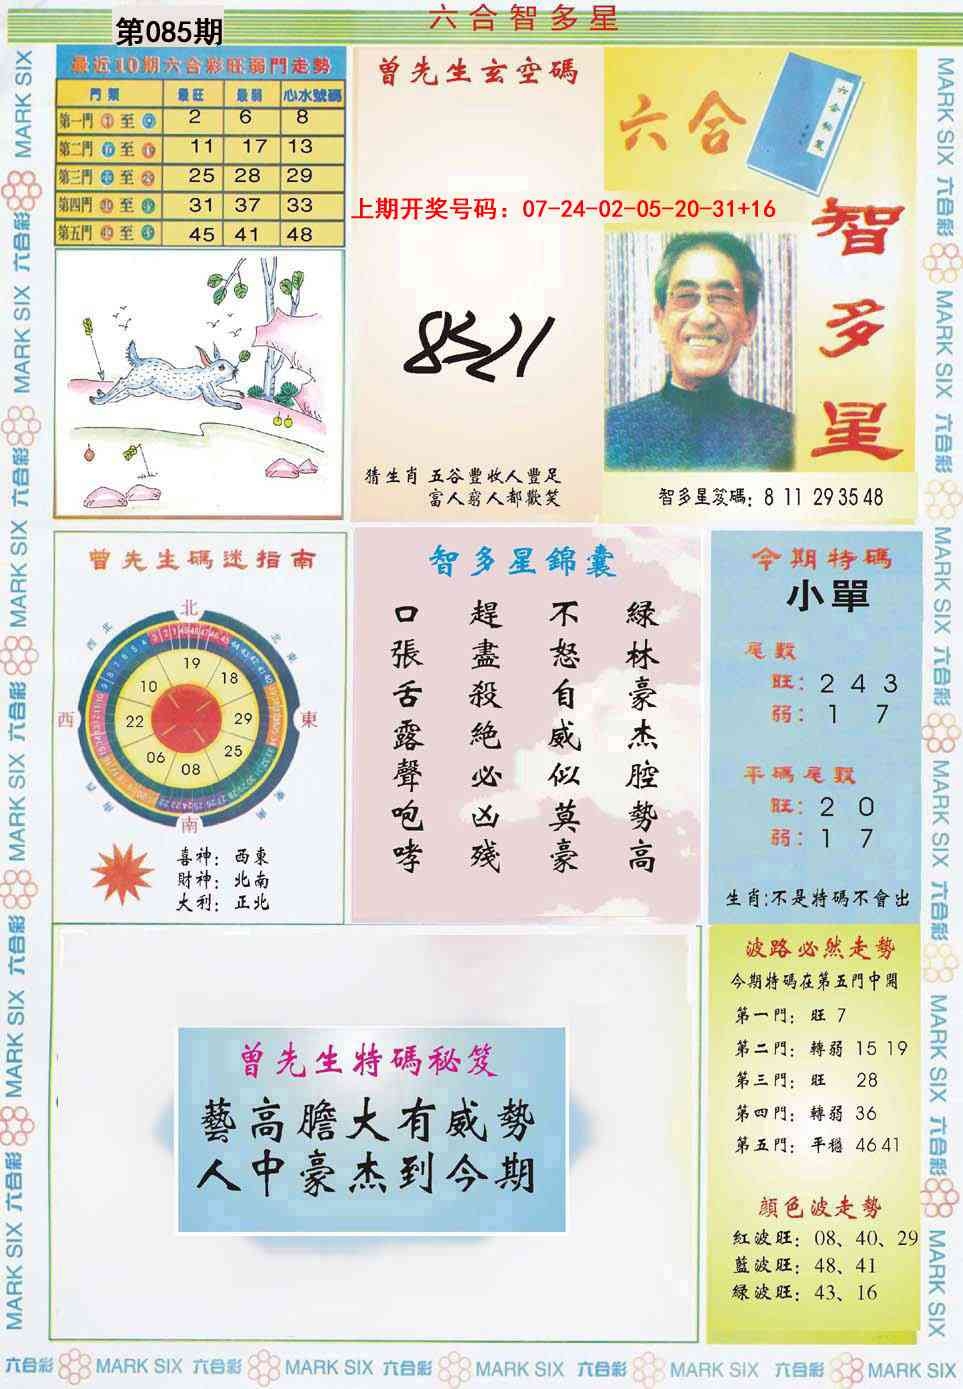 六合智多星
第085期
最近10期六合彩旺弱門走勢
門類 最旺 最弱 心水號碼
第一門 至 2 6 8
第二門 至 11 17 13
第三門 至 25 28 29
第四門 至 31 37 33
第五門 至 45 41 48
曾先生玄空碼
上期开奖号码：07-24-02-05-20-31+16
猜生肖 五谷豐收人豐足
富人窮人都歡笑
六合
智多星
智多星笈碼：8 11 29 35 48
曾先生碼迷指南
北
西北
北東
西
東
西南
東南
南
19
18
29
25
08
06
22
10
喜神：西東
財神：北南
大利：正北
智多星錦囊
綠林豪杰腔勢高
不怒自威似莫豪
趕盡殺絕必凶殘
口張舌露聲咆哮
今期特碼
小單
尾數
旺：2 4 3
弱：1 7
平碼尾數
旺：2 0
弱：1 7
生肖:不是特碼不會出
曾先生特碼秘笈
藝高膽大有威勢
人中豪杰到今期
波路必然走勢
今期特碼在第五門中開
第一門：旺 7
第二門：轉弱 15 19
第三門：旺 28
第四門：轉弱 36
第五門：平穩 46 41
顔色波走勢
紅波旺：08、40、29
藍波旺：48、41
綠波旺：43、16
MARK SIX 六合彩 MARK SIX 六合彩 MARK SIX 六合彩 MARK SIX 六合彩 MARK SIX 六合彩 MARK SIX
MARK SIX 六合彩 MARK SIX 六合彩 MARK SIX 六合彩 MARK SIX 六合彩 MARK SIX 六合彩 MARK SIX
六合彩 MARK SIX 六合彩 MARK SIX 六合彩 MARK SIX 六合彩 MARK SIX 六合彩 MARK SIX